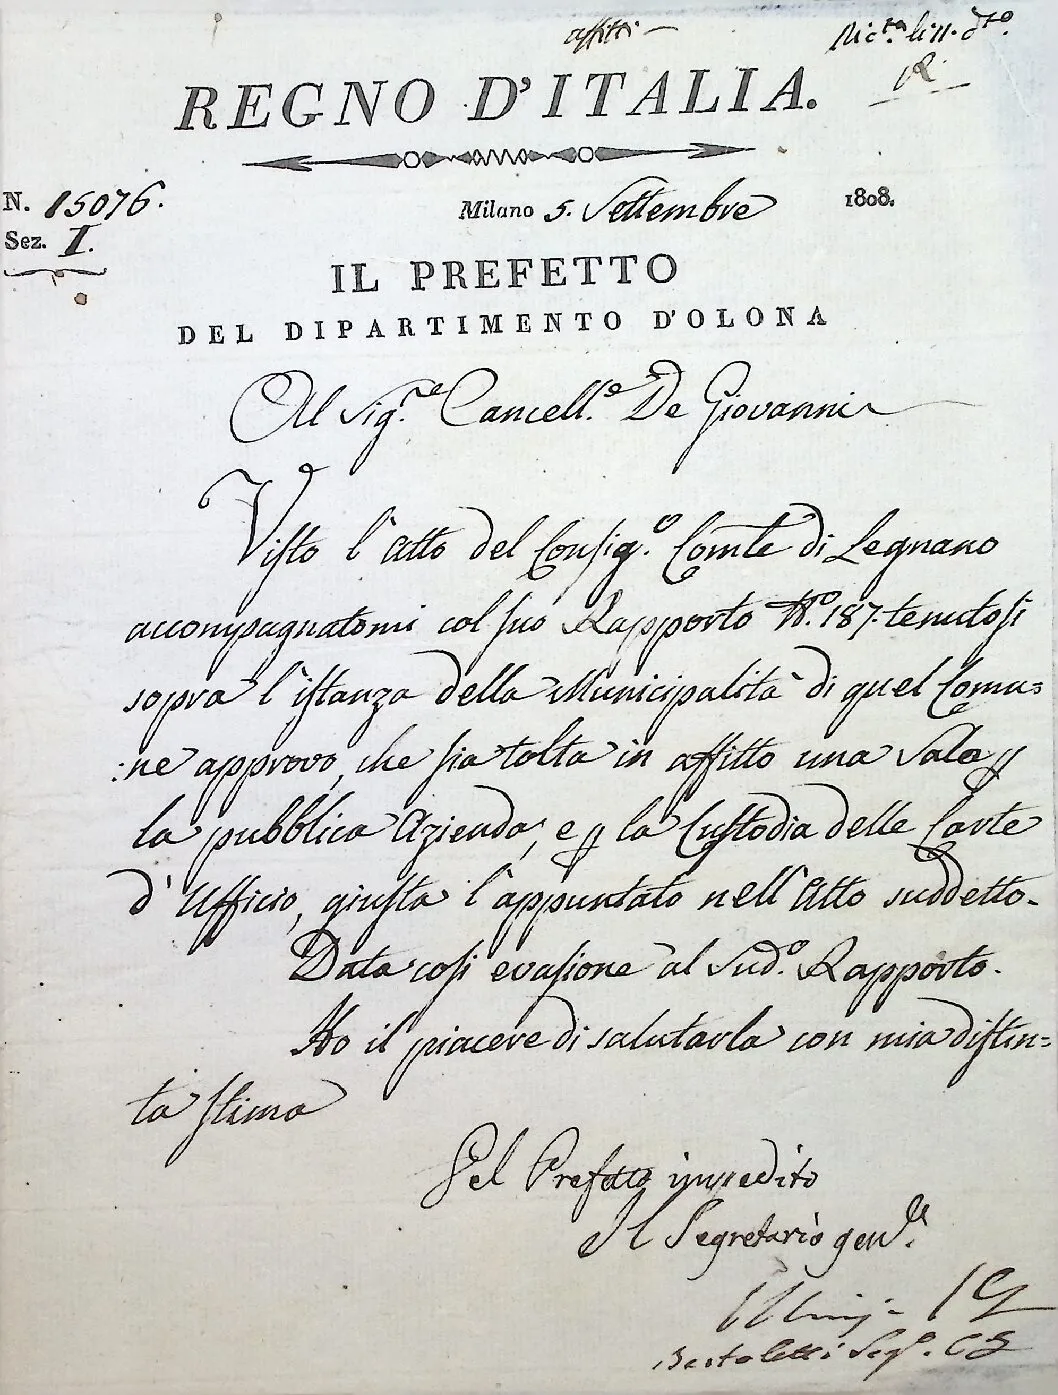 affitti
Ric.ta li 11. d.to
R
REGNO D'ITALIA.
N. 15076.
Milano 5. Settembre 1808.
Sez. I.
IL PREFETTO
DEL DIPARTIMENTO D'OLONA
Al Sig.re Cancell.e De Giovanni
Visto l'Atto del Consig.o Com.le di Legnano
accompagnatomi col suo Rapporto N.o 187. tenutosi
sopra l'istanza della Municipalità di quel Comu=
:ne approvo, che sia tolta in affitto una Sala p
la pubblica Azienda, e p la Custodia delle Carte
d'Ufficio, giusta l'appuntato nell'Atto suddetto.
Data così evasione al Sud.o Rapporto.
Ho il piacere di salutarla con mia distin=
ta stima
Pel Prefetto impedito
Il Segretario gen.le
Bertoletti Seg.